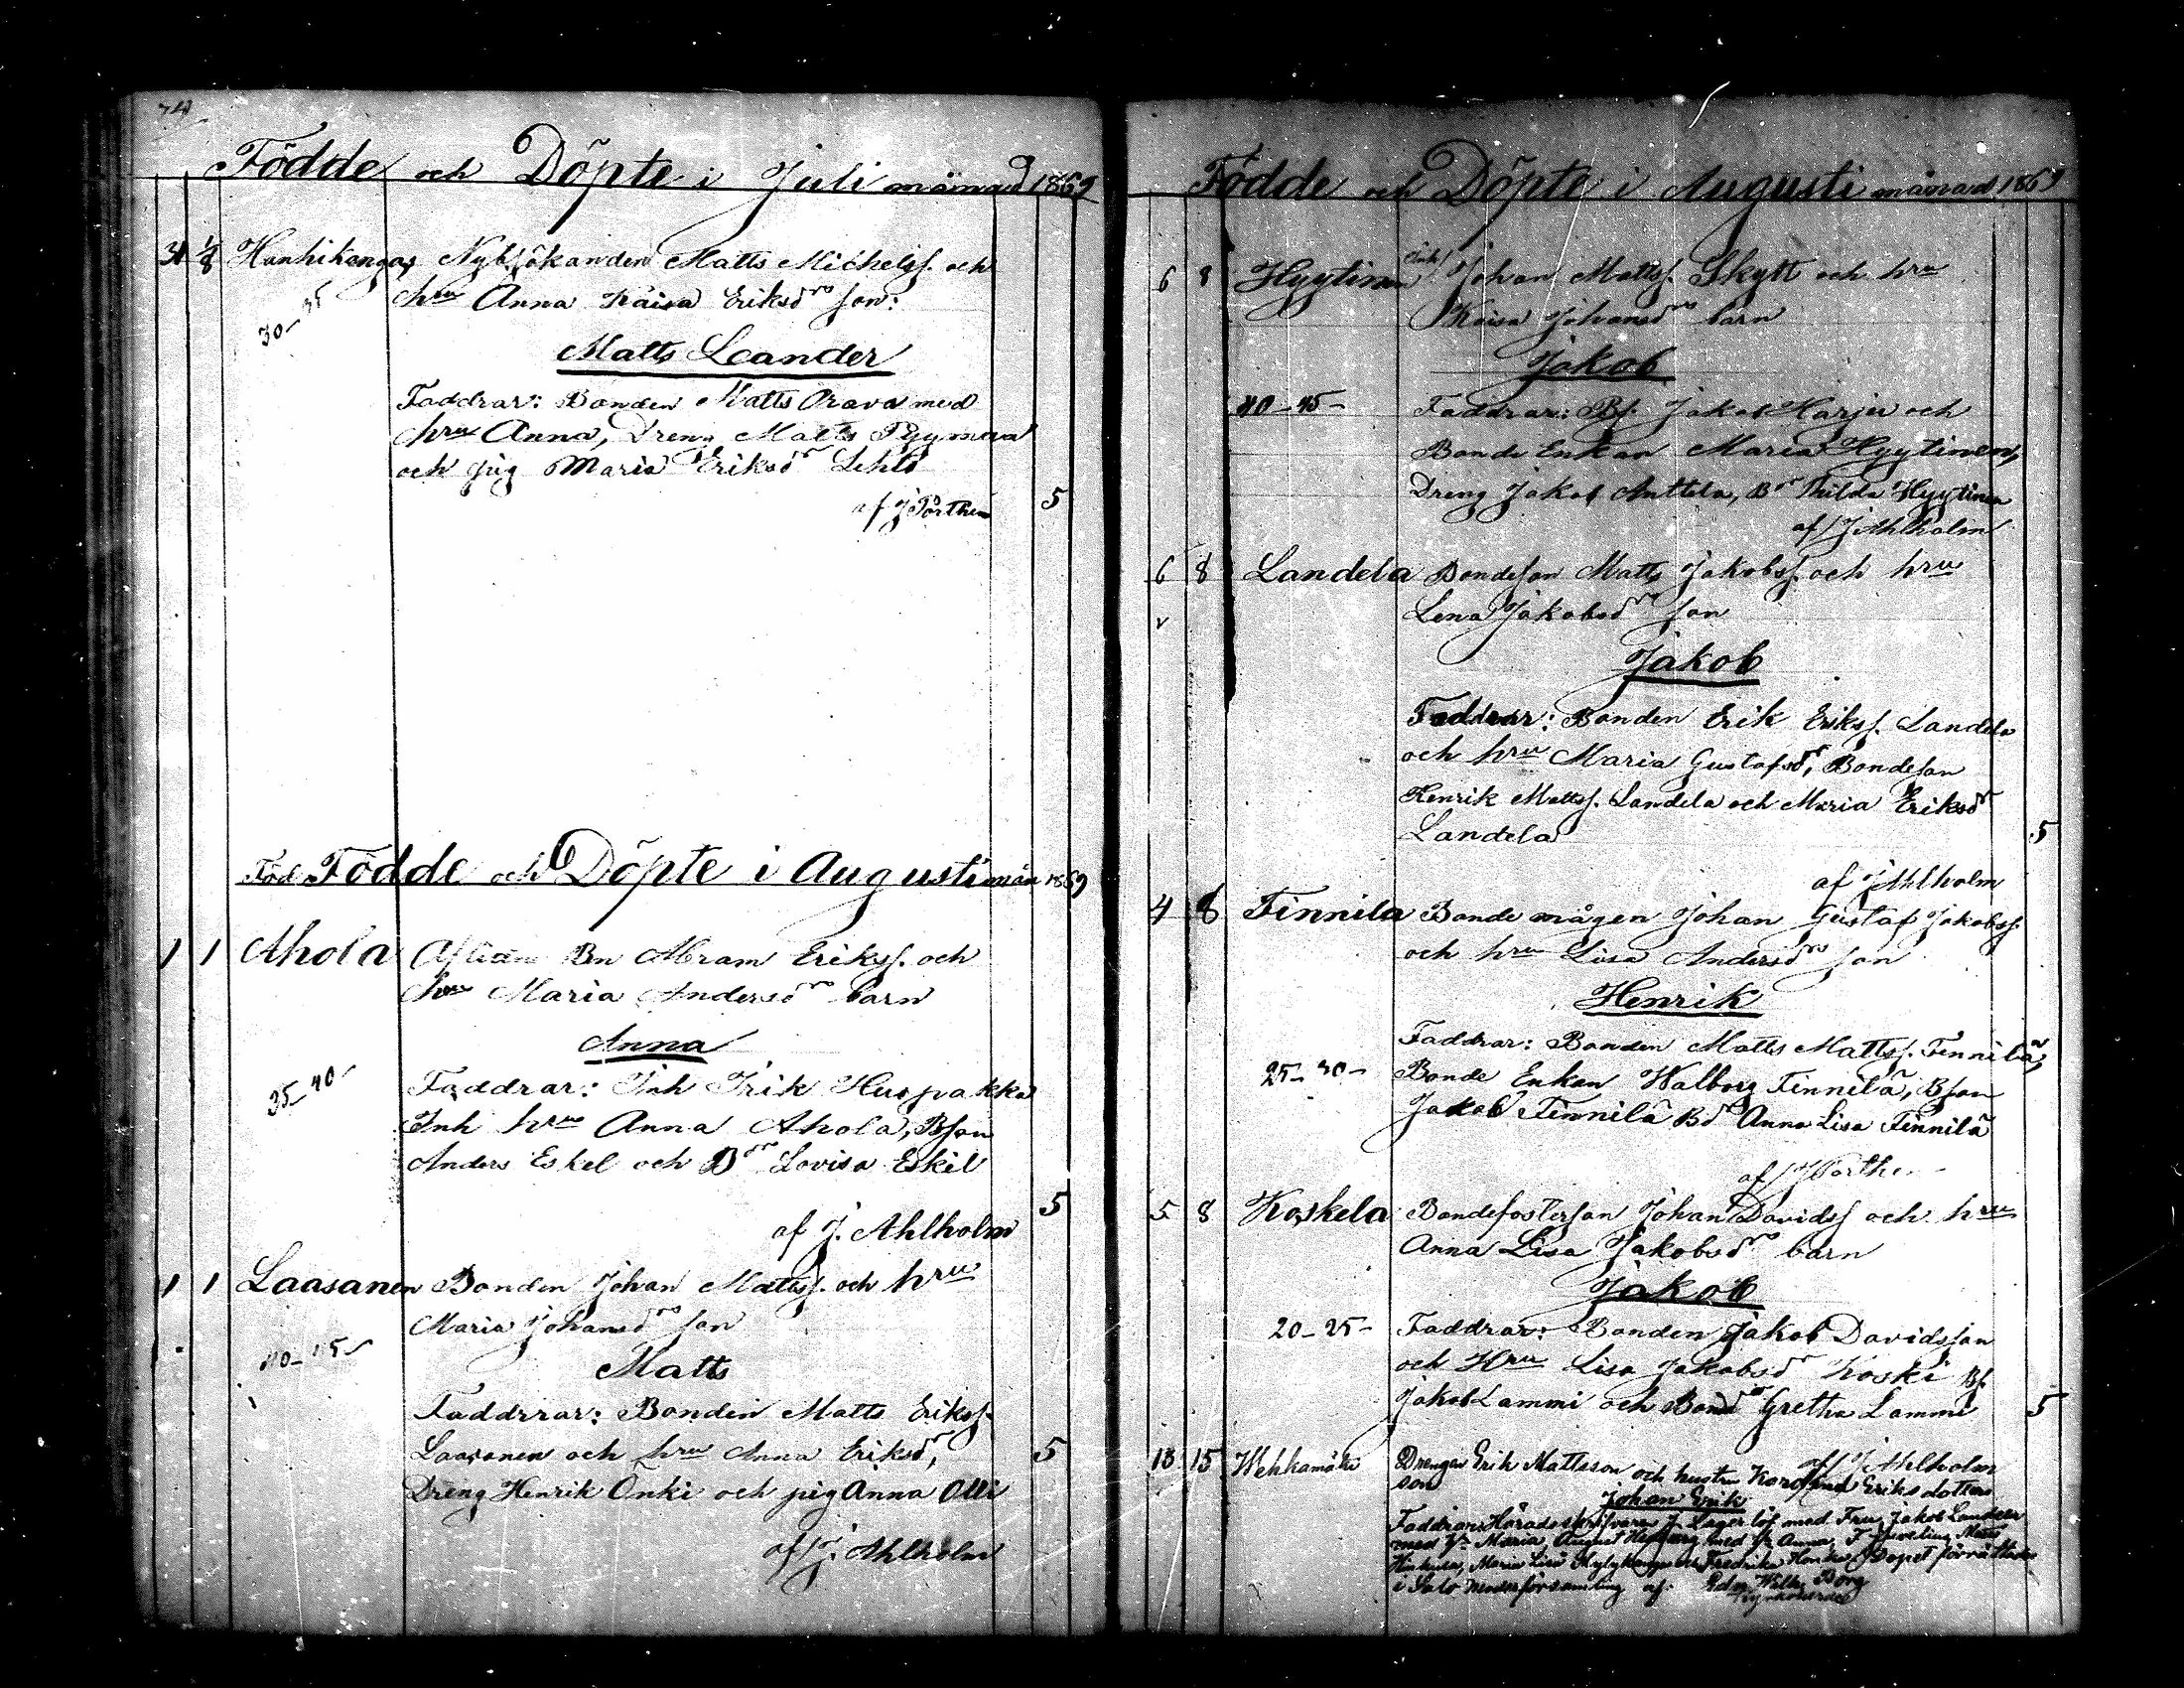 74
Födde och Döpte i Juli månad 1869
31 1/8 Hanhikangas Nybsökanden Matts Michelss. och
hru Anna Kaisa Eriksdrs son:
30-35
Matts Leander
Faddrar: Bonden Matts Orava med
hru Anna, Dreng Matts
och pig Maria Eriksdr Lehto
af J Porthen 5
Födde och Döpte i Augusti mån 1869
1 1 Ahola Bn Abram Erikss. och
hru Maria Andersdrs barn
Anna
35-40-
Faddrar: Inh Erik Huspakka
Inh hru Anna Ahola, Bson
Anders Eskel och Bdr Lovisa Eskil
5
af J. Ahlholm
1 1 Laasanen Bonden Johan Mattss. och hru
Maria Johansdrs son
40-45-
Matts
Faddrrar: Bonden Matts Erikss.
Laasanen och hru Anna Eriksdr, 5
Dreng Henrik Onki och pig Anna Olli
af J. Ahlholm
Födde och Döpte i Augusti månad 1869
6 8 Hyytinen Inh. Johan Mattss. Skytt och hru
Kaisa Johansdrs barn
Jakob
40-45- Faddrar: Bs. Jakob Harju och
Bonde Enkan Maria Hyytinen,
Dreng Jakob Anttila, Bdr Hilda Hyytinen
af J Ahlholm
6 8 Landela Bondeson Matts Jakobss. och hru
Lena Jakobsdrs son
Jakob
Faddrar: Bonden Erik Erikss. Landela
och hru Maria Gustafsdr, Bondeson
Henrik Mattss. Landela och Maria Eriksdr
Landela 5
af J Ahlholm
4 8 Finnila Bonde mågen Johan Gustaf Jakobss.
och hru Lisa Andersdrs son
Henrik
Faddrar: Bonden Matts Mattss. Finnilä,
25-30- Bonde Enkan Walborg Finnilä, Bson
Jakob Finnilä Bdr Anna Lisa Finnilä
af J Porthen
5 8 Koskela Bondefosterson Johan Davidss och hru
Anna Lisa Jakobsdrs barn
Jakob
20-25- Faddrar: Bonden Jakob Davidsson
och Hru Lisa Jakobsdr Koski Bs.
Jakob Lammi och Bonddr Gretha Lammi 5
af J Ahlholm
13 15 Wehkamäki Drengen Erik Mattsson och hustru Karolina Eriksdotters
son
Johan Erik
Faddrar: Häradsskrifvaren J. Lagerlöf med Fru, Jakob
med Maria, August med Anna, F Matts
Maria Lisa och Fredrika Dopet förrättades
i Salo Moderförsamling af: Wilh. Borg